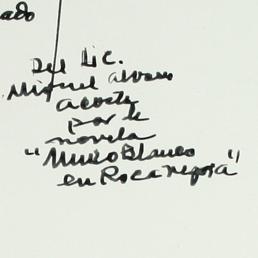 ado
Del Lic.
Miguel Alvarez
Acosta
por la
novela
"Muro Blanco
en Roca negra"